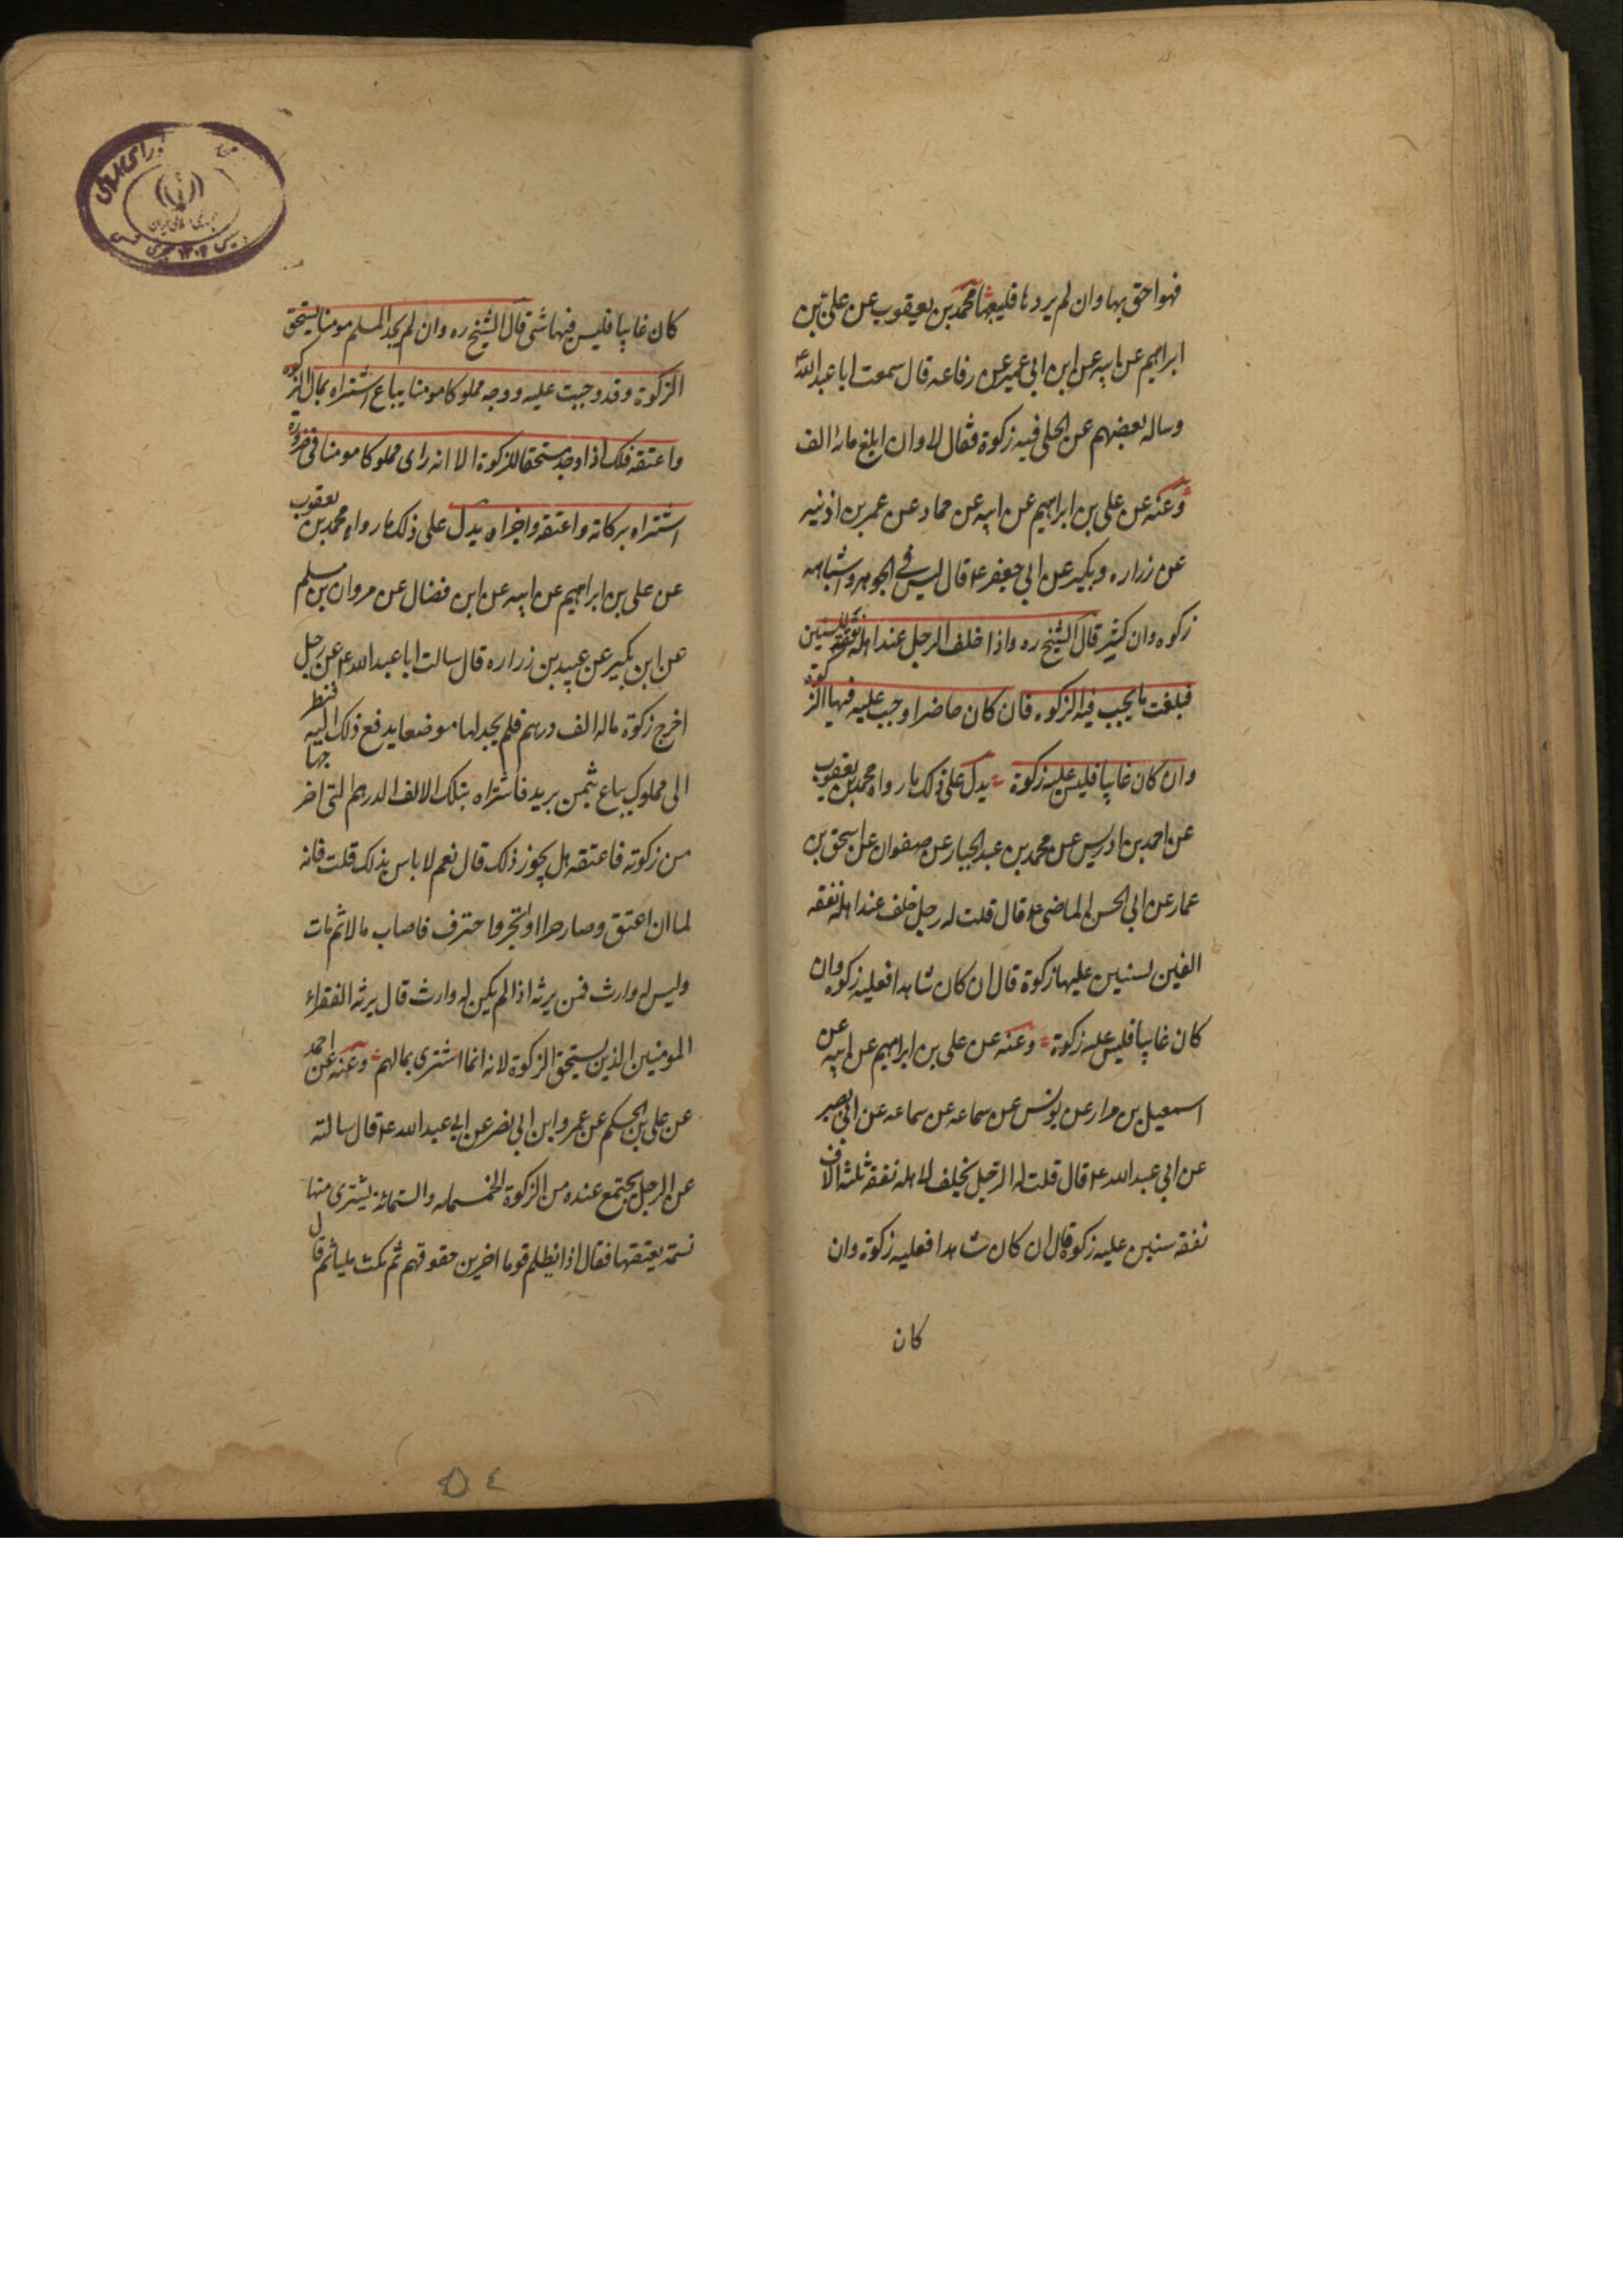 فهو احق بها وان لم يردها فليبعها محمد بن يعقوب عن على بن
ابراهيم عن ابيه عن ابن ابى عمير عن رفاعه قال سمعت ابا عبد الله ع
وساله بعضهم عن الحلى فيه زكوة فقال لا وان ابلغ مائة الف
وعنه عن على بن ابراهيم عن ابيه عن حماد عن عمر بن اذنيه
عن زراره وبكير عن ابى جعفر ع قال ليس فى الجوهر واشباهه
زكوه وان كثر قال الشيخ ره واذا خلف الرجل عند اهله نفقة للسنين
فبلغت ما يجب فيه الزكوه فان كان حاضرا وجب عليه فيها الزكوة
وان كان غايبا فليس عليه زكوة يدل على ذلك ما رواه محمد بن يعقوب
عن احمد بن ادريس عن محمد بن عبد الجبار عن صفوان عن اسحق بن
عمار عن ابى الحسن الماضى ع قال قلت له رجل خلف عند اهله نفقه
الفين لسنتين عليها زكوة قال ان كان شاهدا فعليه زكوه وان
كان غايبا فليس عليه زكوة وعنه عن على بن ابراهيم عن ابيه عن
اسمعيل بن مرار عن يونس عن سماعه عن سماعه عن ابى بصير
عن ابى عبد الله ع قال قلت له الرجل يخلف لاهله نفقه ثلثة الاف
نفقه سنين عليه زكوة قال ان كان شاهدا فعليه زكوة وان
كان
كان غايبا فليس فيها شى قال الشيخ ره وان لم يجد المسلم مومنا يستحق
الزكوة وقد وجبت عليه ووجد مملوكا مومنا يباع اشتراه بمال الزكوه
واعتقه فلك اذا وجد مستحقا للزكوة الا انه راى مملوكا مومنا فى ضروره
اشتراه بركاته واعتقه واجزاه يدل على ذلك ما رواه محمد بن يعقوب
عن على بن ابراهيم عن ابيه عن ابن فضال عن مروان بن مسلم
عن ابن بكير عن عبيد بن زراره قال سالت ابا عبد الله ع عن رجل
اخرج زكوة ماله الف درهم فلم يجد لها موضعا يدفع ذلك اليه فنظر
الى مملوك يباع بثمن يريد فاشتراه بتلك الالف الدرهم التى اخرجها
من زكوته فاعتقه هل يجوز ذلك قال نعم لا باس بذلك قلت فانه
لما ان اعتق وصار حرا واتجر واحترف فاصاب مالا ثم مات
وليس له وارث فمن يرثه اذا لم يكن له وارث قال يرثه الفقراء
المومنين الذين يستحق الزكوة لانه انما اشترى بمالهم وعنه عن احمد
عن على بن الحكم عن عمرو ابن ابى نصر عن ابى عبد الله ع قال سالته
عن الرجل يجتمع عنده من الزكوة الخمسمايه والستمائة يشترى منها
نسمة يعتقها فقال اذا يظلم قوما اخرين حقوقهم ثم مكث مليا ثم قال
٥٤